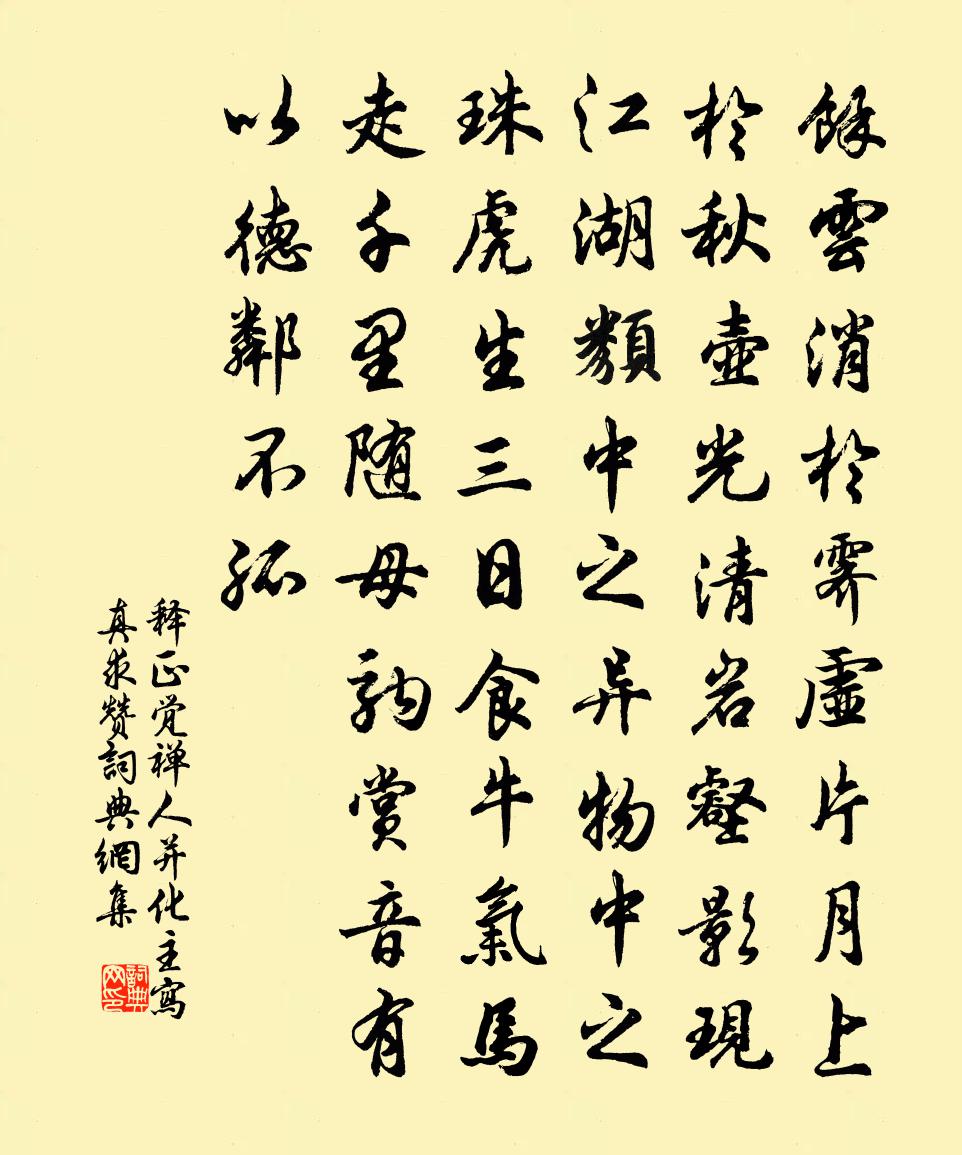 餘雲消於霽虛片月上
於秋壺光清岩壑影現
江湖類中之异物中之
珠虎生三日食牛氣馬
走千里随母駒賞音有
以德鄰不孤
释正觉禅人并化主寫
真求赞詞典網集
詞典
网印